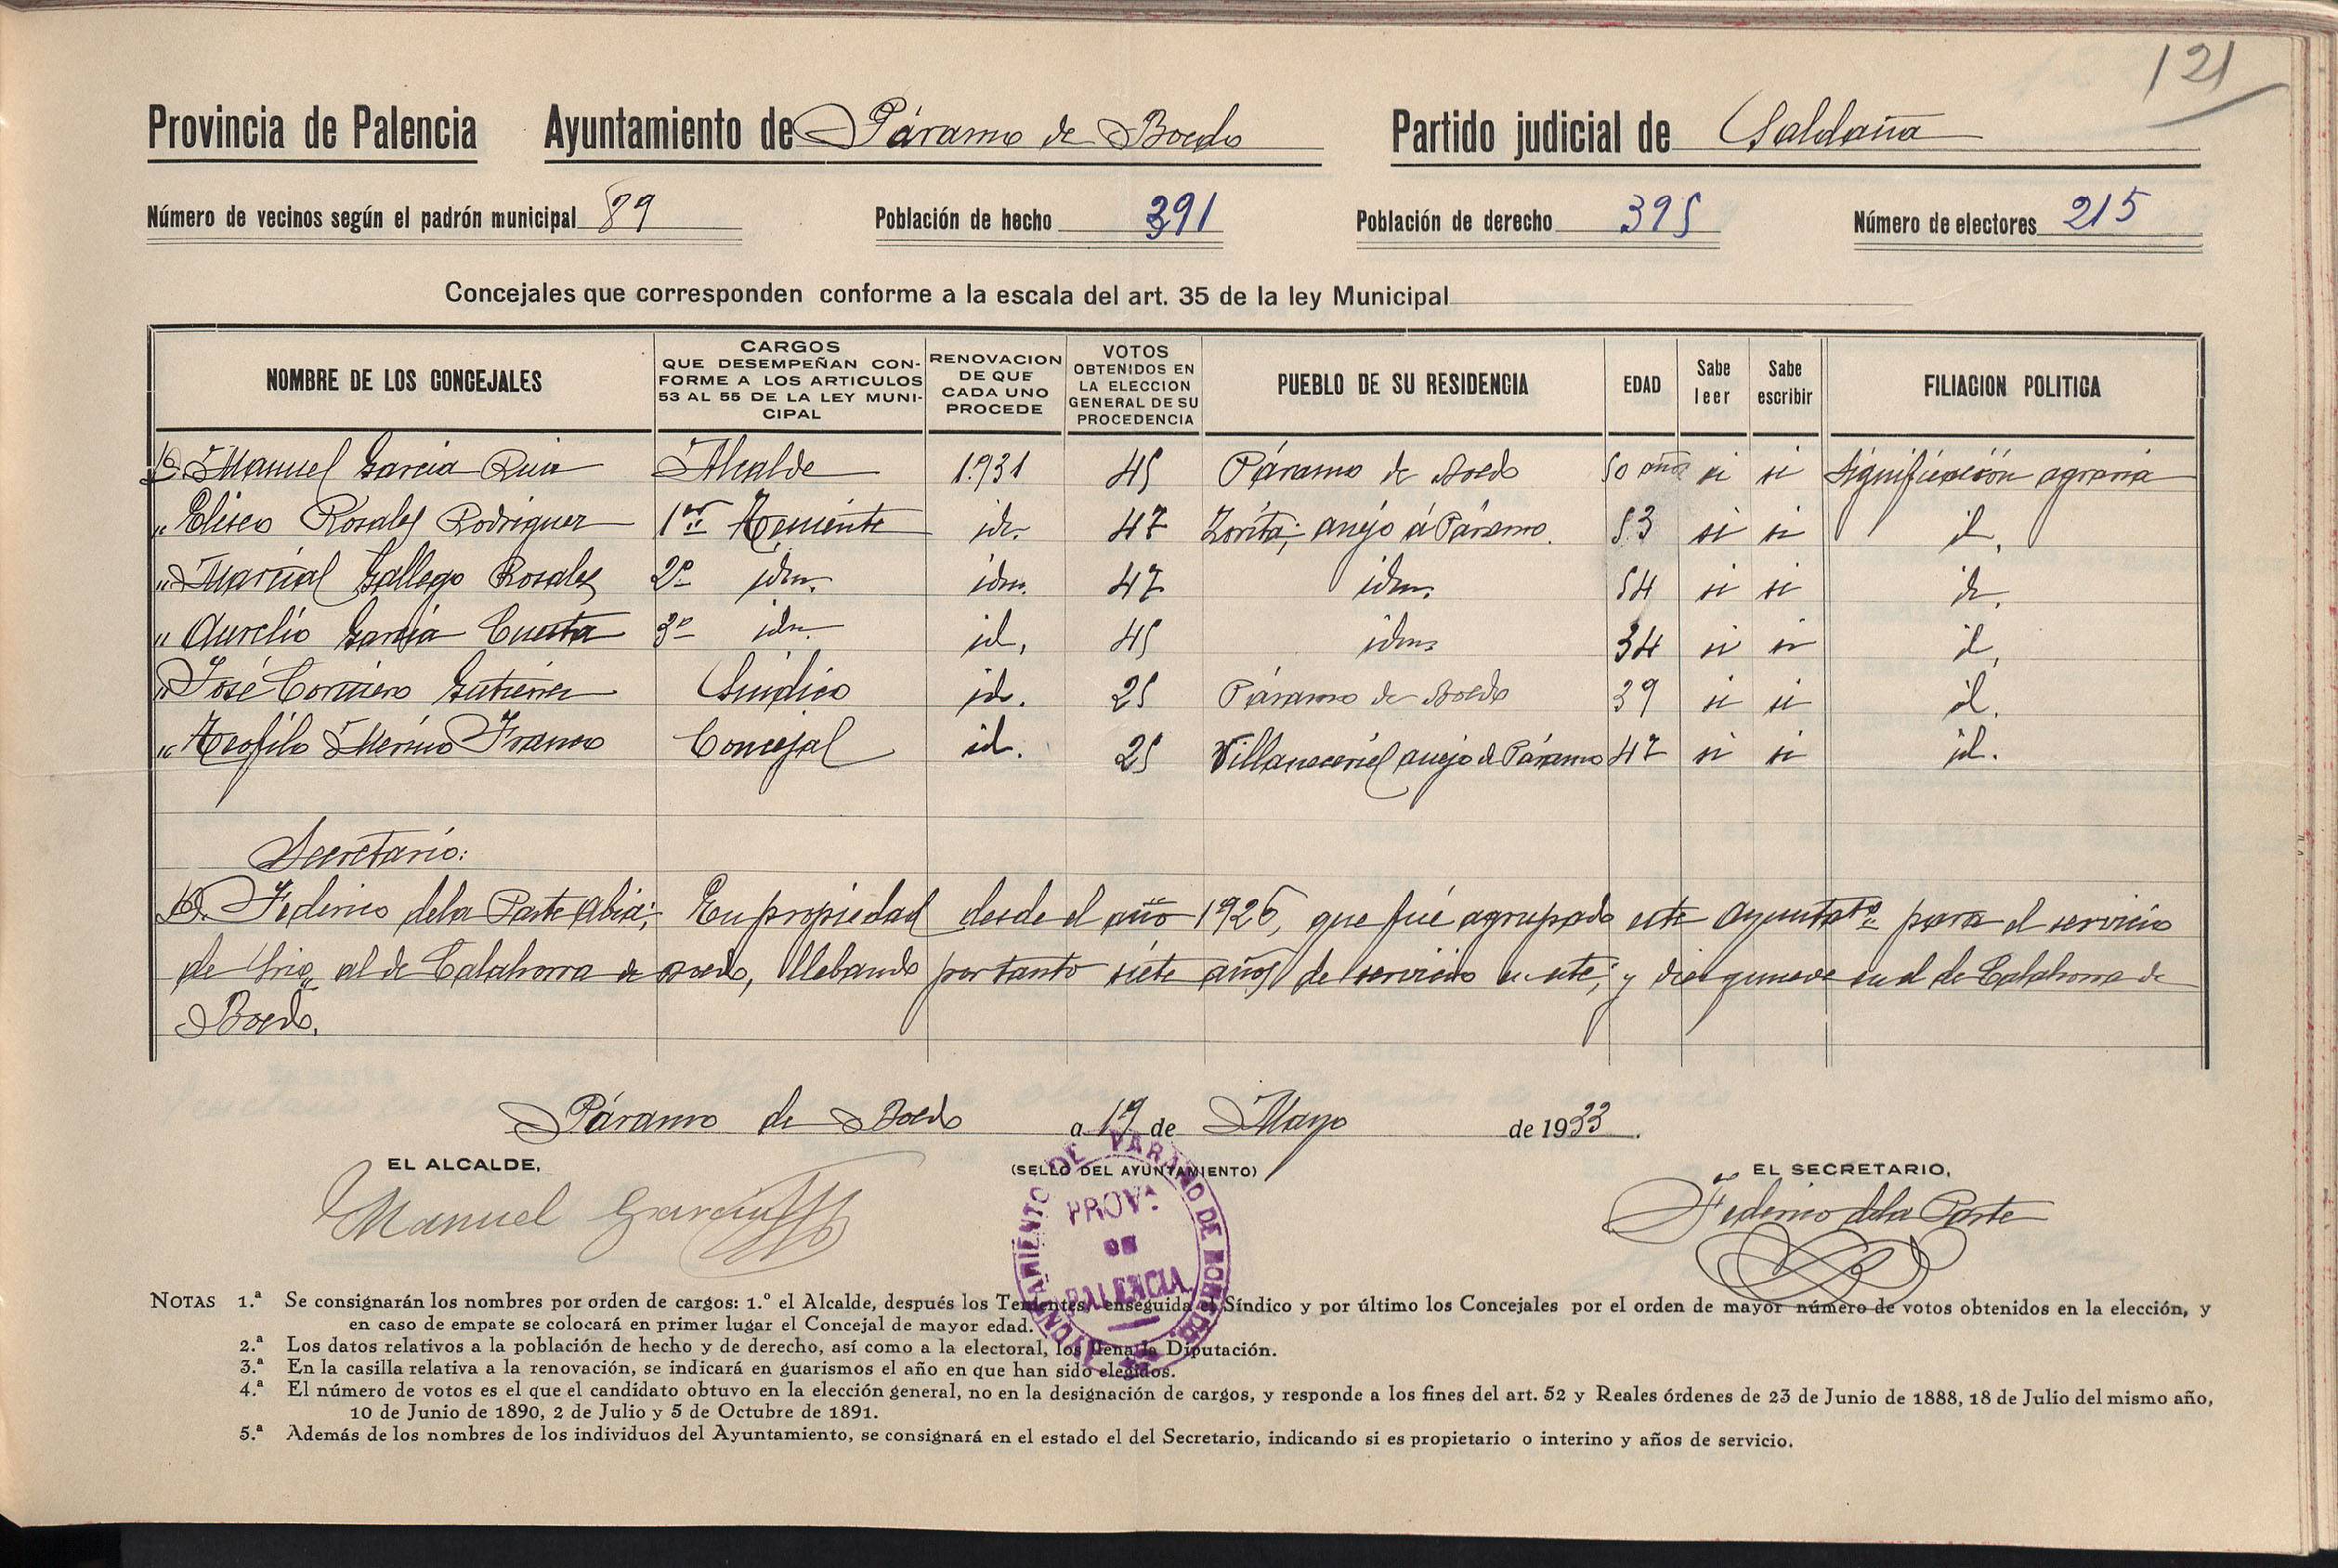 121
Provincia de Palencia Ayuntamiento de Páramo de Boedo Partido judicial de Saldaña
Número de vecinos según el padrón municipal 89 Población de hecho 391 Población de derecho 395 Número de electores 215
Concejales que corresponden conforme a la escala del art. 35 de la ley Municipal
NOMBRE DE LOS CONCEJALES
CARGOS
QUE DESEMPEÑAN CON-
FORME A LOS ARTICULOS
53 AL 55 DE LA LEY MUNI-
CIPAL
RENOVACION
DE QUE
CADA UNO
PROCEDE
VOTOS
OBTENIDOS EN
LA ELECCION
GENERAL DE SU
PROCEDENCIA
PUEBLO DE SU RESIDENCIA
EDAD
Sabe
leer
Sabe
escribir
FILIACION POLITICA
D. Manuel García Ruiz Alcalde 1.931 45 Páramo de Boedo 50 años si si Significación agraria
" Eliseo Rosales Rodriguez 1er Teniente id. 47 Zorita; anejo á Páramo. 53 si si id.
" Marcial Gallego Rosales 2º idm. idm. 47 idm. 54 si si id.
" Aurelio García Cuesta 3º idm. id. 45 idm. 34 si si id.
" José Gutiérrez Síndico id. 25 Páramo de Boedo 39 si si id.
" Teofilo Merino Franco Concejal id. 25 Villaneceriel anejo de Páramo 47 si si id.
Secretario:
D. Federico de la Parte Abia; En propiedad desde el año 1926, que fué agrupado este Ayuntatº para el servicio
de Srio al de Calahorra de Boedo, llebando por tanto siete años de servicio en este; y diez y nueve en el de Calahorra de
Boedo.
Páramo de Boedo a 19 de Mayo de 1933.
EL ALCALDE, (SELLO DEL AYUNTAMIENTO) EL SECRETARIO,
Manuel García Federico de la Parte
AYUNTAMIENTO DE PARAMO DE BOEDO
PROV.ª
DE
PALENCIA
NOTAS 1.ª Se consignarán los nombres por orden de cargos: 1.º el Alcalde, después los Tenientes, enseguida el Síndico y por último los Concejales por el orden de mayor número de votos obtenidos en la elección, y
en caso de empate se colocará en primer lugar el Concejal de mayor edad.
2.ª Los datos relativos a la población de hecho y de derecho, así como a la electoral, los llena la Diputación.
3.ª En la casilla relativa a la renovación, se indicará en guarismos el año en que han sido elegidos.
4.ª El número de votos es el que el candidato obtuvo en la elección general, no en la designación de cargos, y responde a los fines del art. 52 y Reales órdenes de 23 de Junio de 1888, 18 de Julio del mismo año,
10 de Junio de 1890, 2 de Julio y 5 de Octubre de 1891.
5.ª Además de los nombres de los individuos del Ayuntamiento, se consignará en el estado el del Secretario, indicando si es propietario o interino y años de servicio.